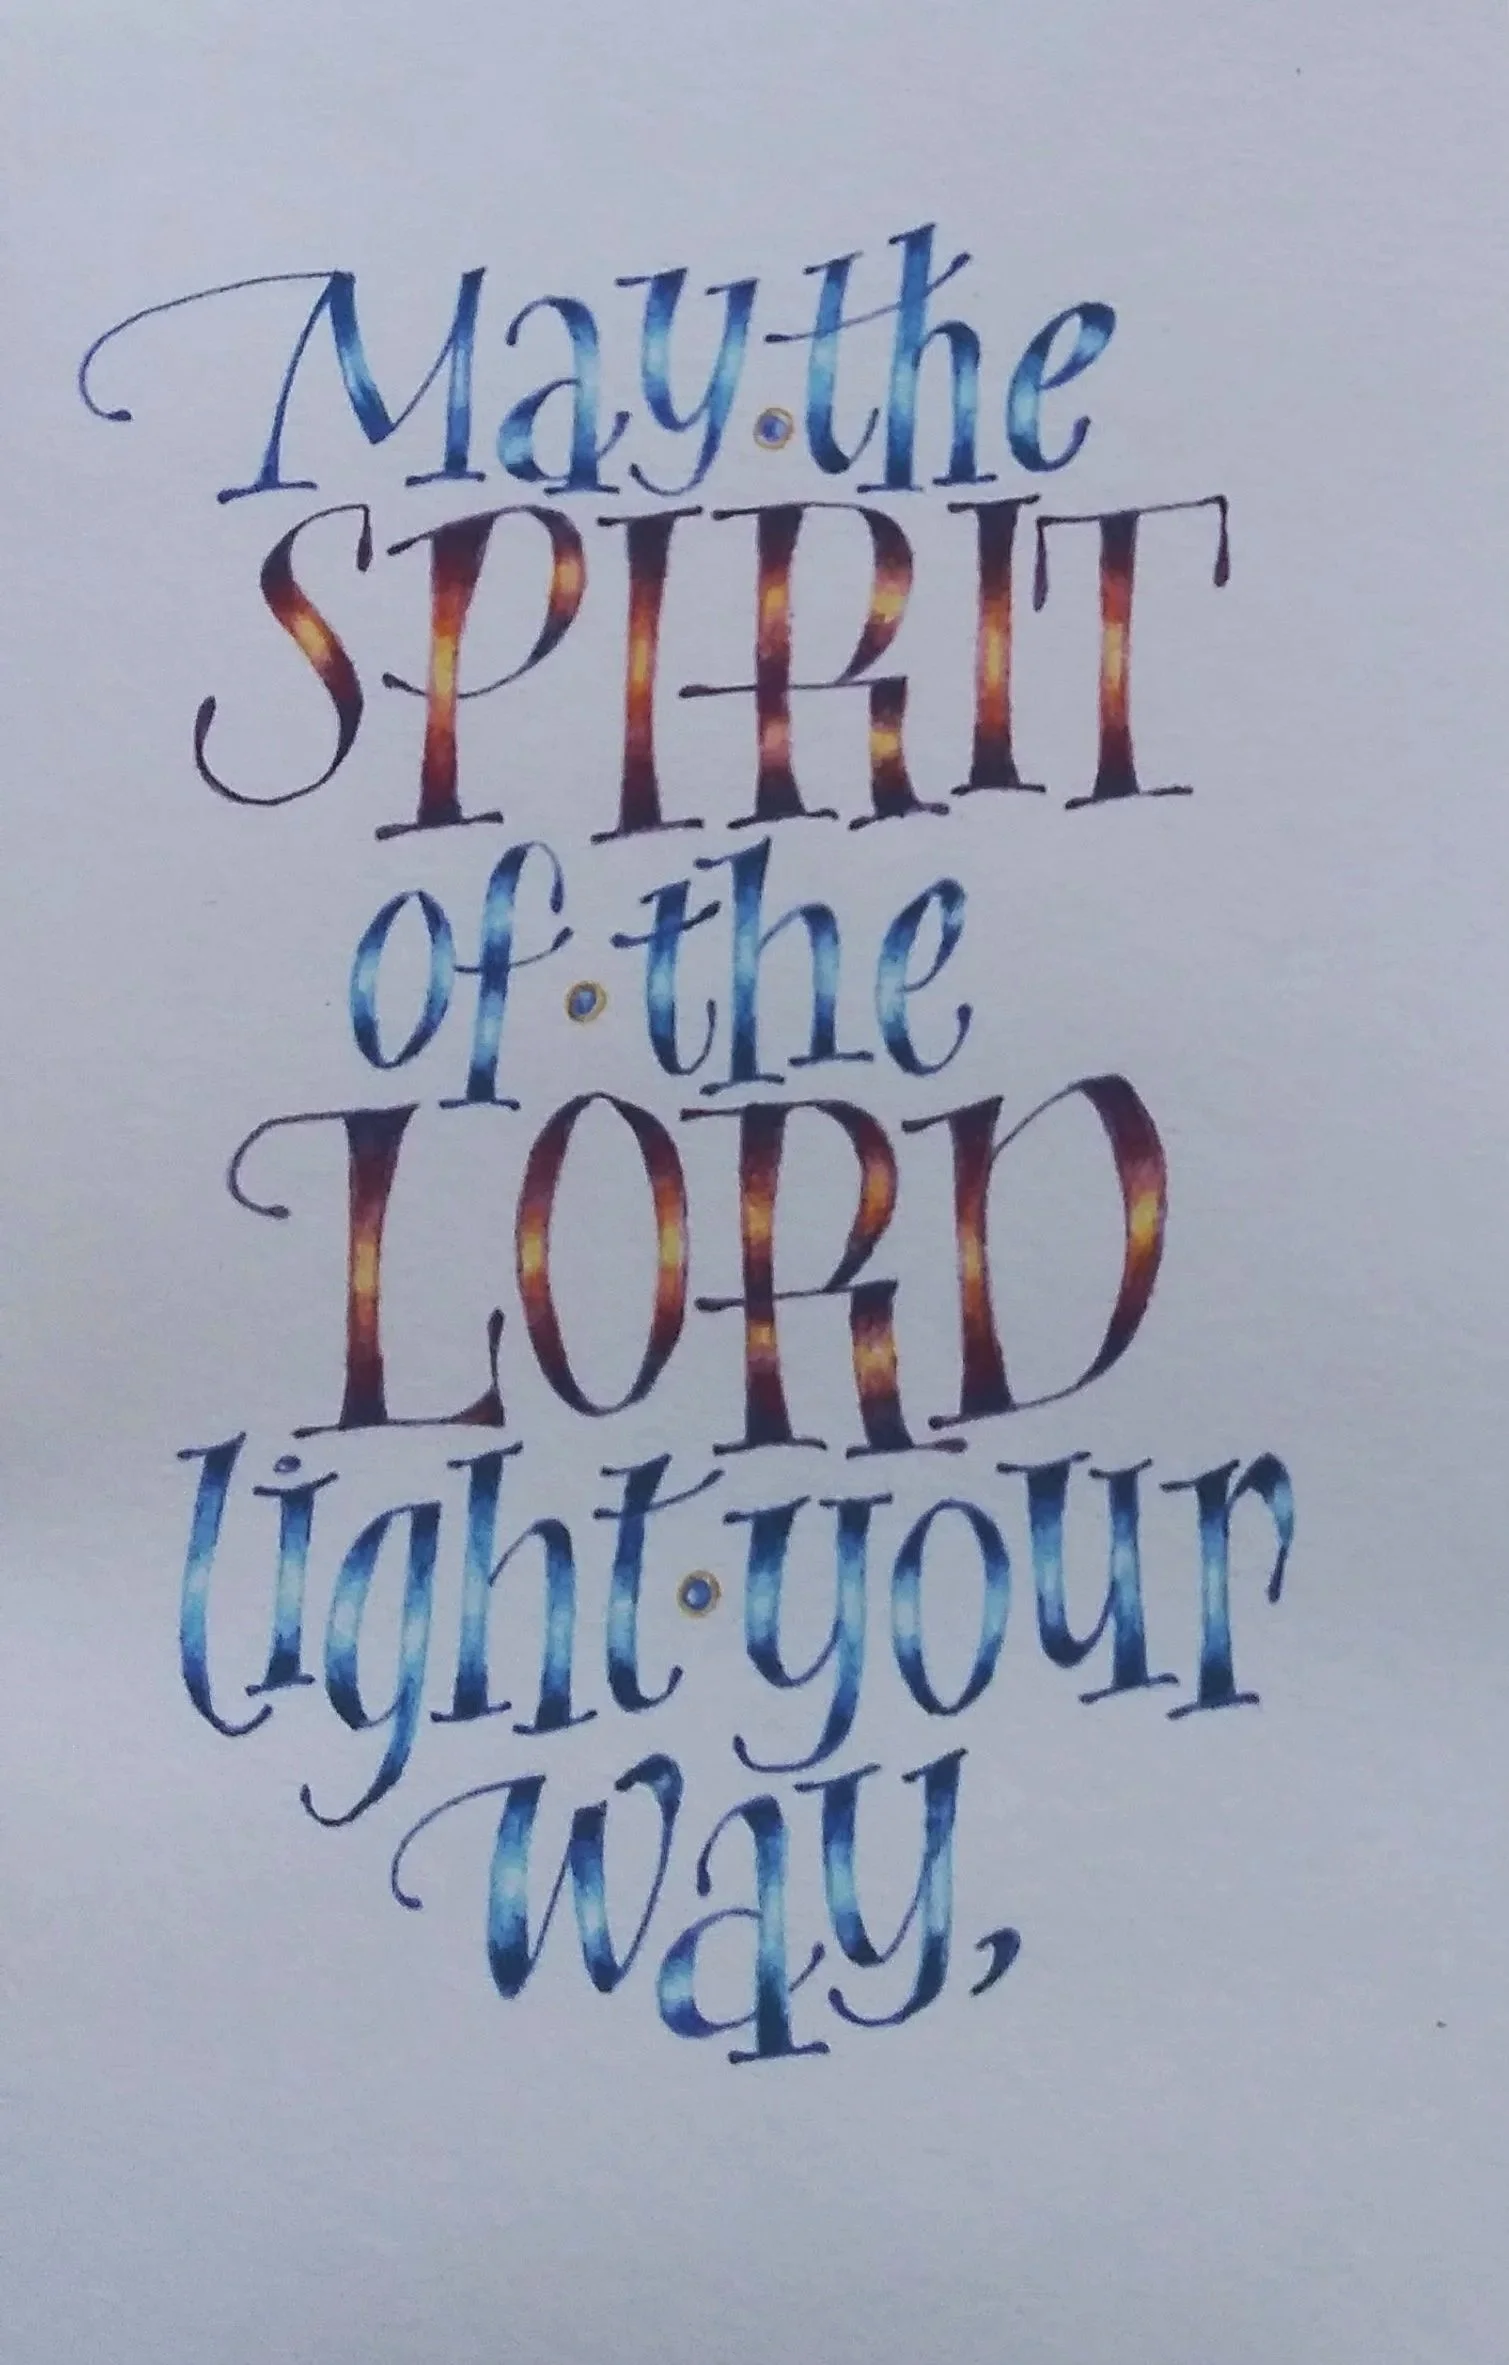 May·the
SPIRIT
of·the
LORD
light·your
way,